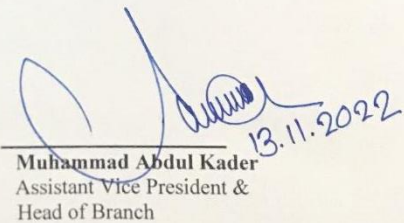 13.11.2022
Muhammad Abdul Kader
Assistant Vice President &
Head of Branch